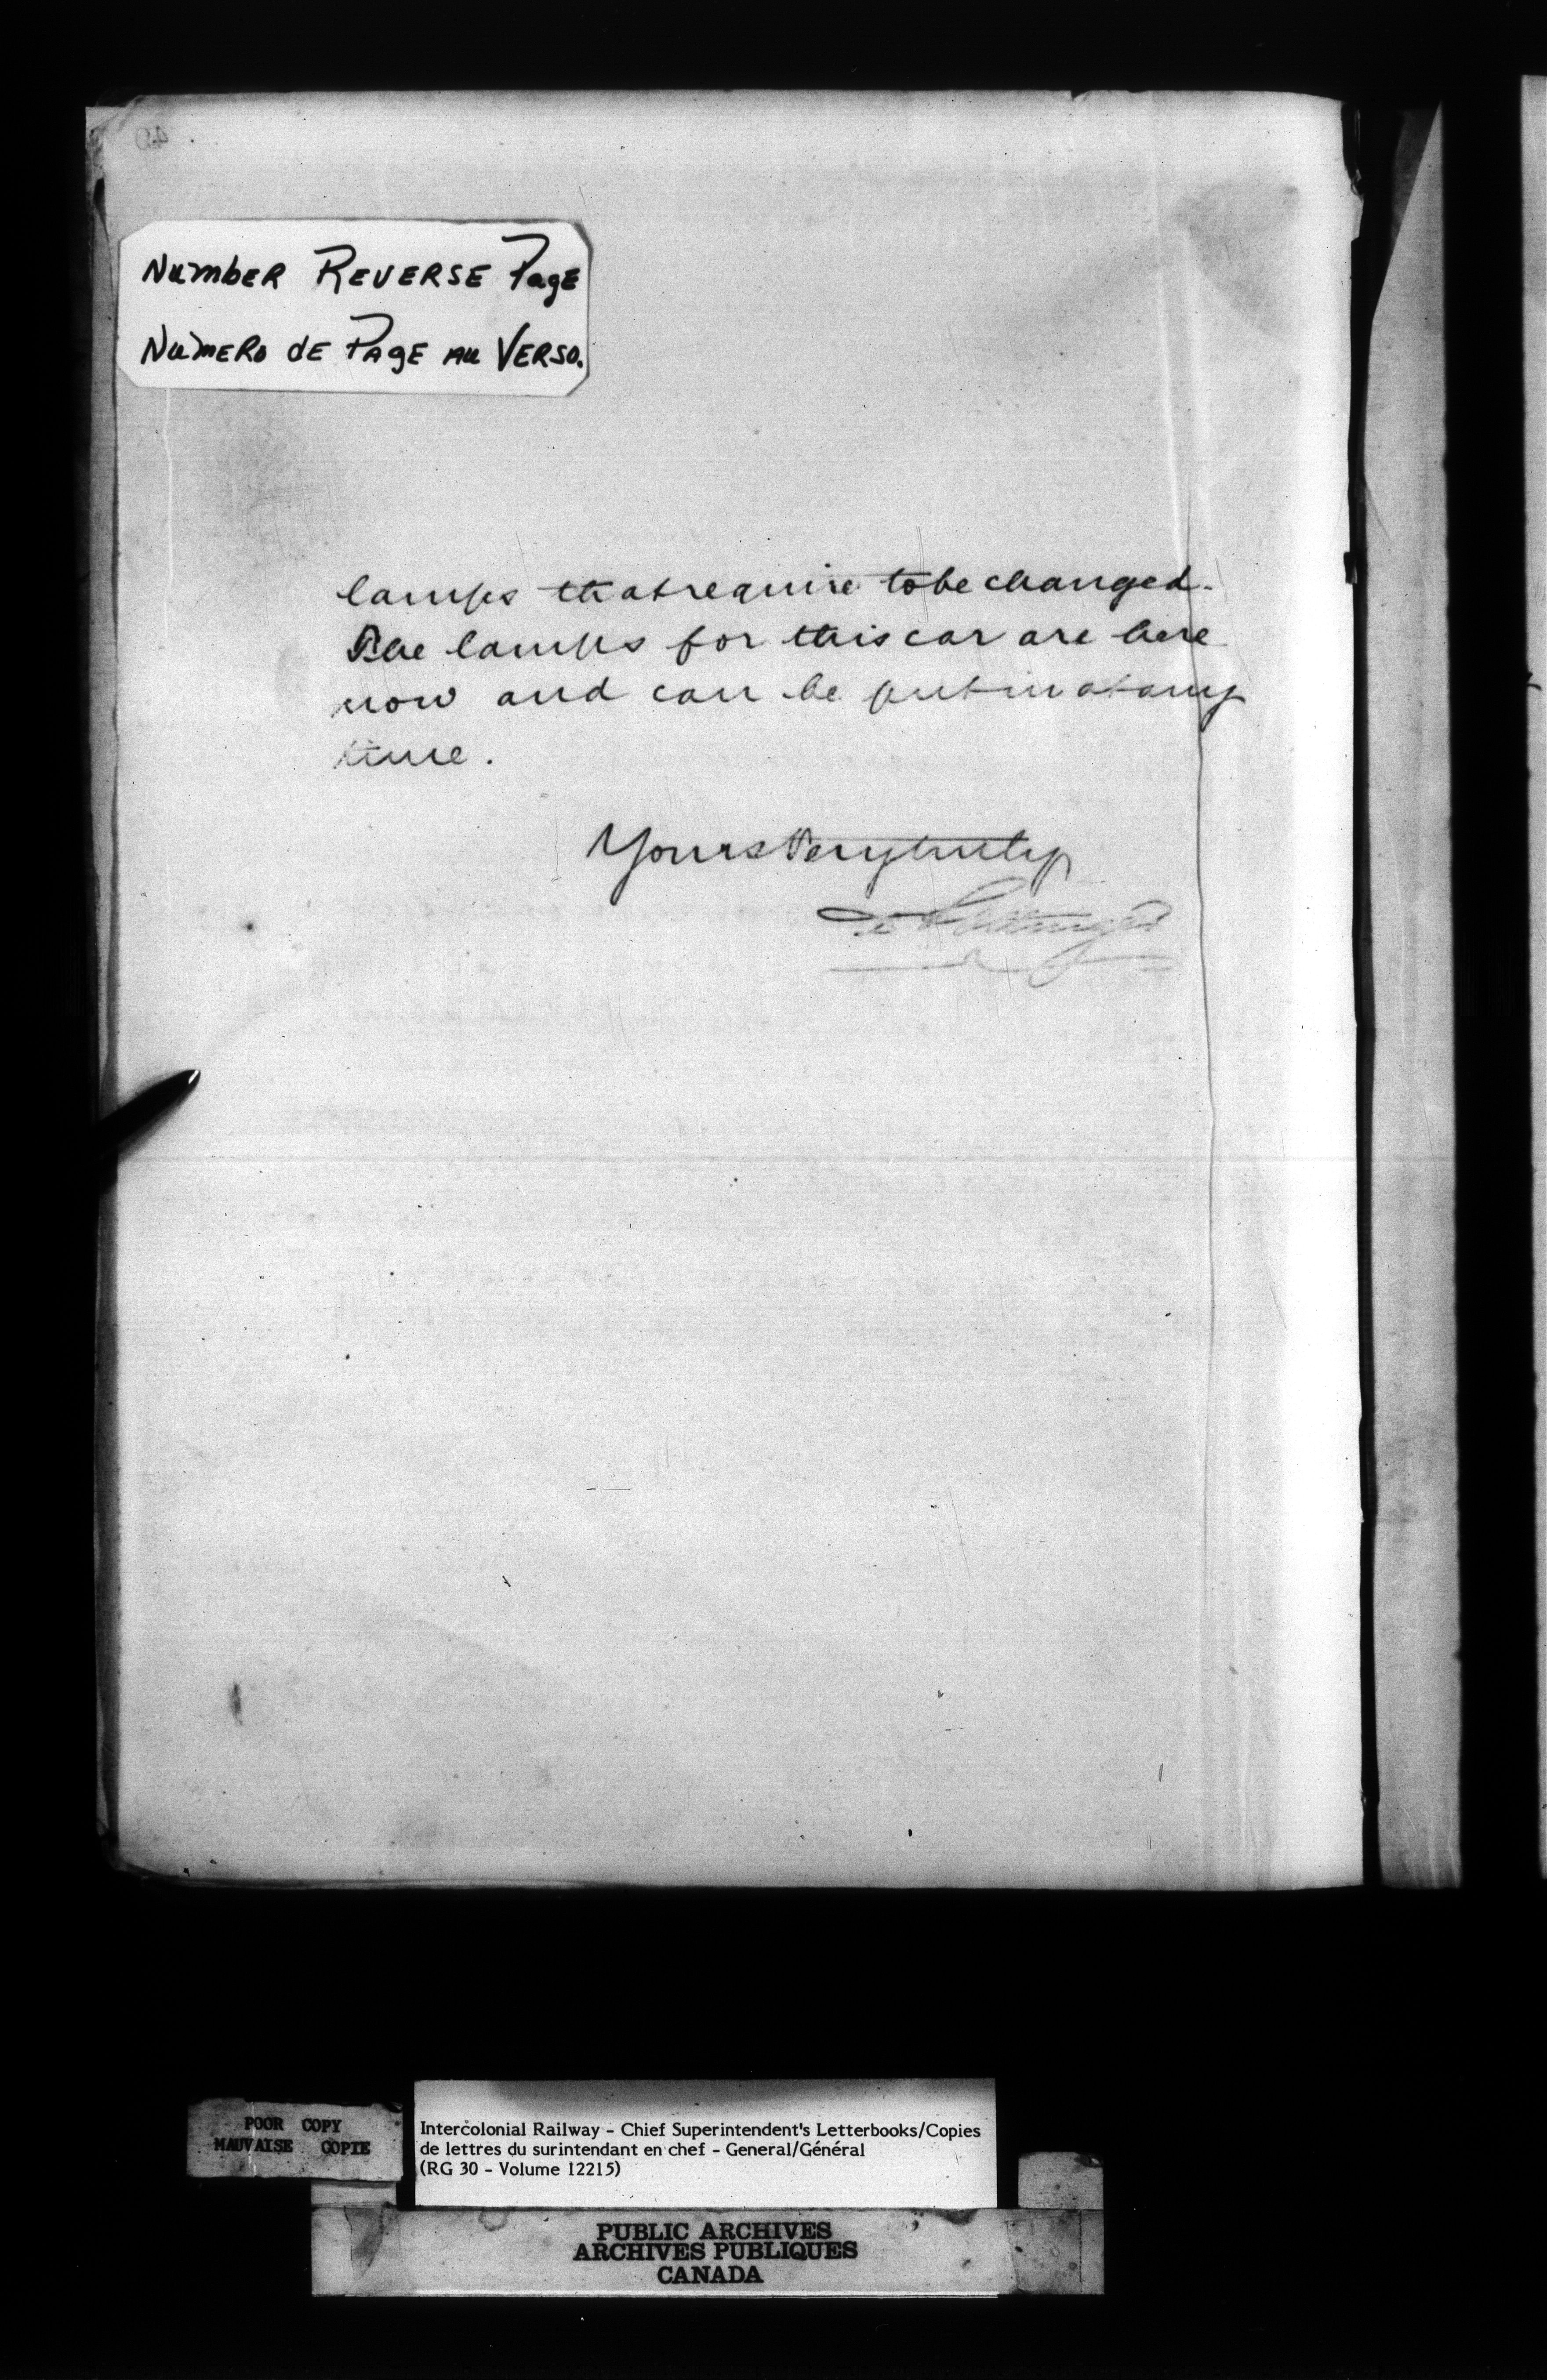 Number Reverse Page
Numero de Page au Verso.
lamps that require to be changed.
The lamps for this car are here
now and can be put in at any
time.
Yours Very truly
POOR COPY
MAUVAISE COPIE
Intercolonial Railway - Chief Superintendent's Letterbooks/Copies
de lettres du surintendant en chef - General/Général
(RG 30 - Volume 12215)
PUBLIC ARCHIVES
ARCHIVES PUBLIQUES
CANADA